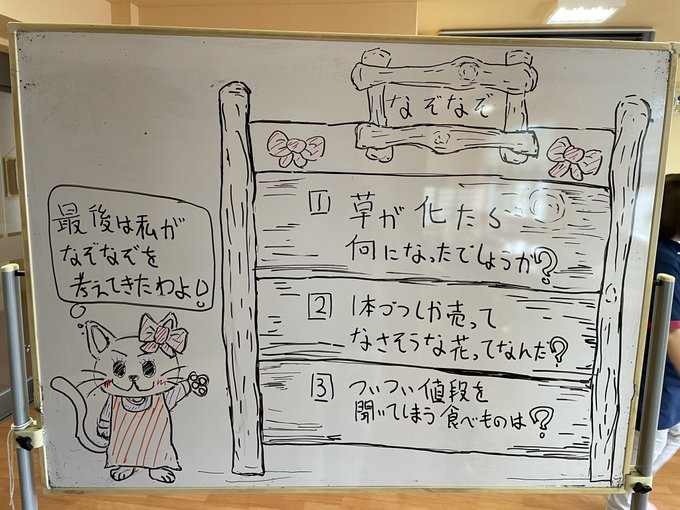 なぞなぞ
最後は私が
なぞなぞを
考えてきたわよ!
1 草が化たら
何になったでしょうか?
2 1本づつしか売って
なさそうな花ってなんだ?
3 ついつい値段を
聞いてしまう食べものは?